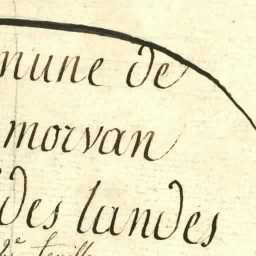 mune de
morvan
des landes
feuille